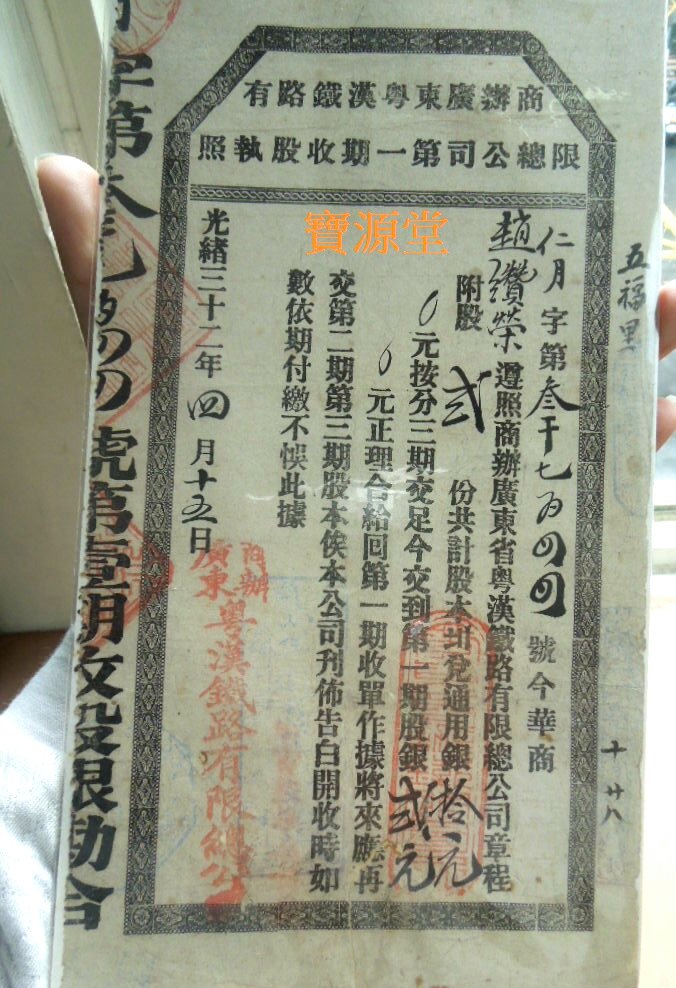 商辦廣東粵漢鐵路有
限總公司第一期收股執照
寶源堂
五福里
十廿八
仁月字第叁千七百四四號今華商
趙瓚榮遵照商辦廣東省粵漢鐵路有限總公司章程
附股貳份共計股本圳兌通用銀拾元
元按分三期交足今交到第一期股銀貳元
元正理合給回第一期收單作據將來應再
交第二期第三期股本俟本公司刊佈告白開收時如
數依期付繳不悞此據
光緒三十二年四月十五日
商辦廣東粵漢鐵路有限總公司
字第叁千七百四四號第壹期收股銀勘合